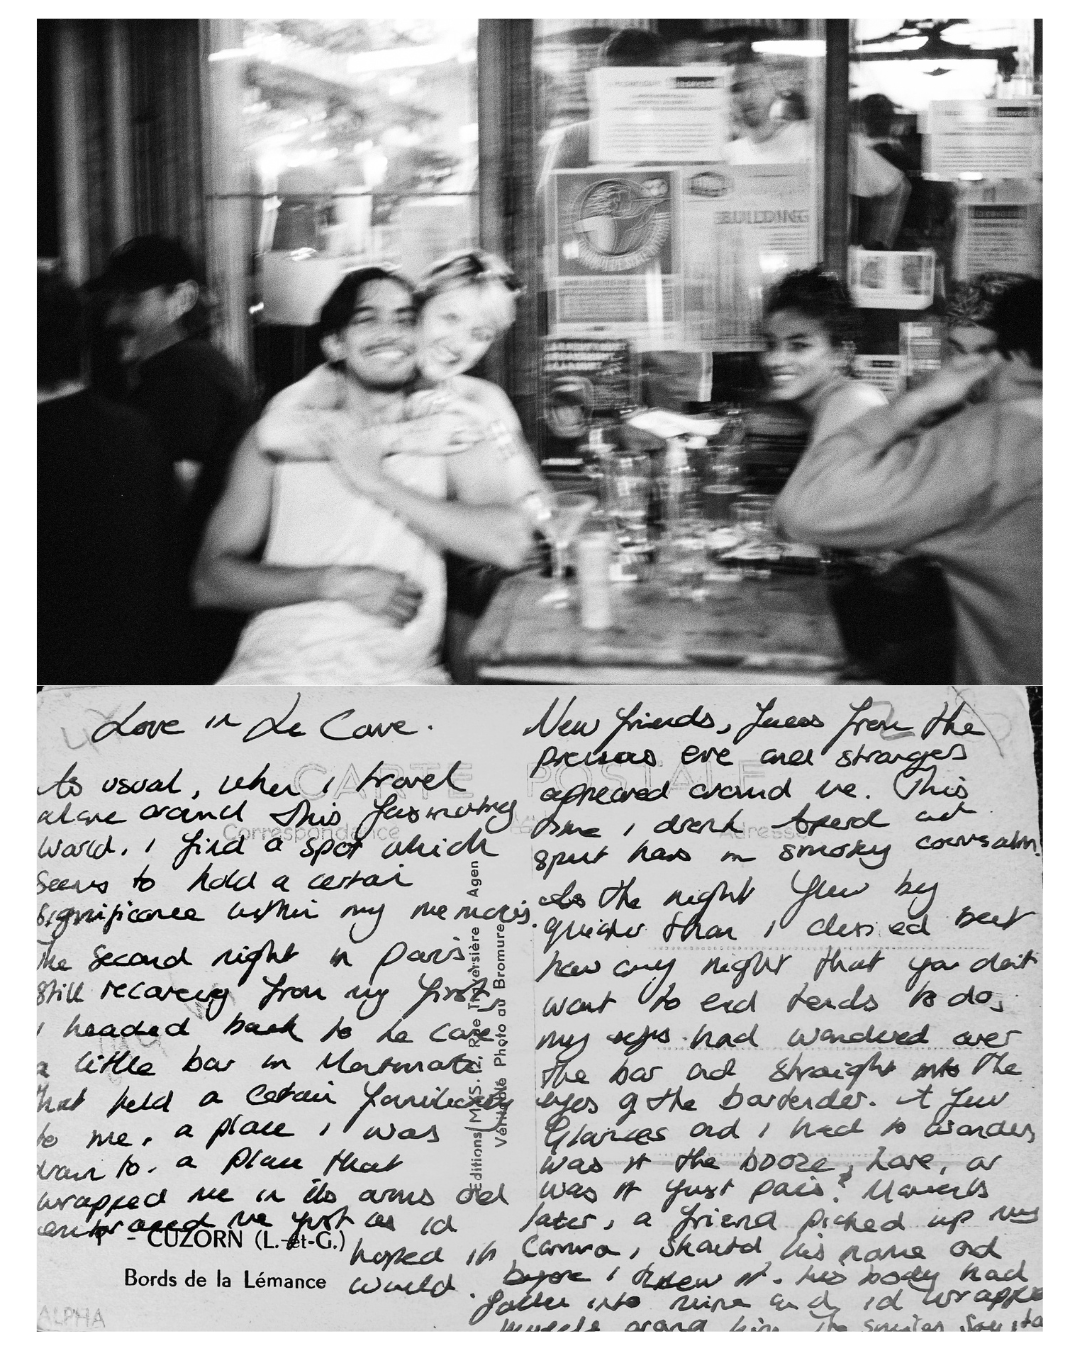 BUILDING
Love in Le Cave.
As usual, when I travel
alone around this fascinating
world, I find a spot which
seems to hold a certain
significance within my memories.
The second night in Paris
still recovering from my first,
I headed back to Le Cave,
a little bar in Montmartre
that held a certain familiarity
to me, a place I was
drawn to. a place that
wrapped me in its arms and
embraced me just as id
hoped it
would.
CARTE POSTALE
Correspondance
Adresse
- CUZORN (L.-et-G.)
Bords de la Lémance
Rue Traversière Agen
Véritable Photo au Bromure
ALPHA
New friends, faces from the
previous eve and strangers
appeared around me. This
time I drank and
spent hours in smokey conversation.
As the night flew by
quicker than I
how any night that you don't
want to end tends to do,
my eyes had wandered over
the bar and straight into the
eyes of the bartender. A few
Glances and I had to wonder,
was it the booze, Love, or
was it just paris? Moments
later, a friend picked up my
Camera, shouted his name and
before I knew it. his body had
fallen into mine and id wrapped
myself around him. The smiles say it